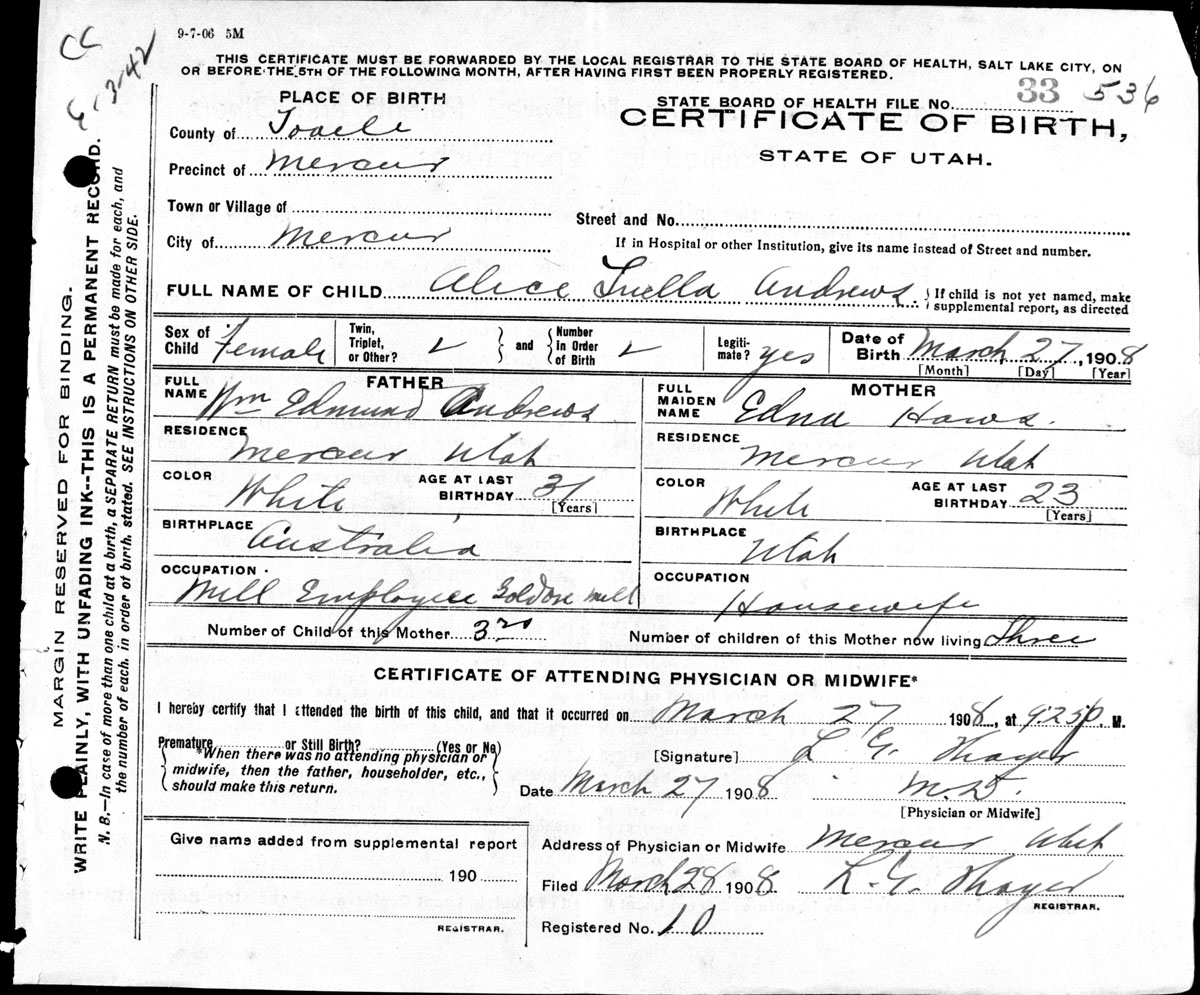 9-7-06 5M
CC
6-3-42
THIS CERTIFICATE MUST BE FORWARDED BY THE LOCAL REGISTRAR TO THE STATE BOARD OF HEALTH, SALT LAKE CITY, ON
OR BEFORE THE 5TH OF THE FOLLOWING MONTH, AFTER HAVING FIRST BEEN PROPERLY REGISTERED.
PLACE OF BIRTH
STATE BOARD OF HEALTH FILE NO. 33 536
County of Tooele
CERTIFICATE OF BIRTH,
Precinct of Mercur
STATE OF UTAH.
Town or Village of
Street and No.
City of Mercur
If in Hospital or other Institution, give its name instead of Street and number.
FULL NAME OF CHILD Alice Luella Andrews { If child is not yet named, make supplemental report, as directed
Sex of Child Female Twin, Triplet, or Other? and Number in Order of Birth Legiti-mate? yes Date of Birth March 27, 1908
[Month] [Day] [Year]
FATHER
FULL NAME Wm Edmund Andrews
RESIDENCE Mercur Utah
COLOR White AGE AT LAST BIRTHDAY 31 [Years]
BIRTHPLACE Australia
OCCUPATION
Mill Employee Goldore mill
MOTHER
FULL MAIDEN NAME Edna Haws.
RESIDENCE Mercur Utah
COLOR White AGE AT LAST BIRTHDAY 23 [Years]
BIRTHPLACE Utah
OCCUPATION
Housewife
Number of Child of this Mother 3rd Number of children of this Mother now living Three
CERTIFICATE OF ATTENDING PHYSICIAN OR MIDWIFE*
I hereby certify that I attended the birth of this child, and that it occurred on March 27 1908, at 9:25 p. M.
Premature or Still Birth? (Yes or No)
*When there was no attending physician or
midwife, then the father, householder, etc.,
should make this return.
[Signature] L. G. Thayer
Date March 27 1908 M.D.
[Physician or Midwife]
Give name added from supplemental report
190
REGISTRAR.
Address of Physician or Midwife Mercur Utah
Filed March 28 1908 L. G. Thayer
REGISTRAR.
Registered No. 10
MARGIN RESERVED FOR BINDING.
WRITE PLAINLY, WITH UNFADING INK--THIS IS A PERMANENT RECORD.
N. B.—In case of more than one child at a birth, a SEPARATE RETURN must be made for each, and
the number of each, in order of birth, stated. SEE INSTRUCTIONS ON OTHER SIDE.